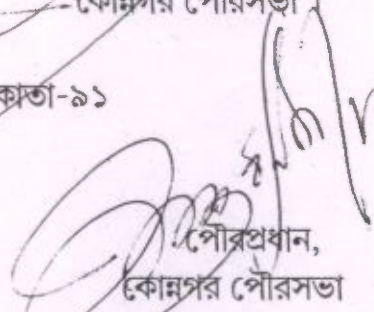 কোন্নগর পৌরসভা।
কাতা-৯১
পৌরপ্রধান,
কোন্নগর পৌরসভা